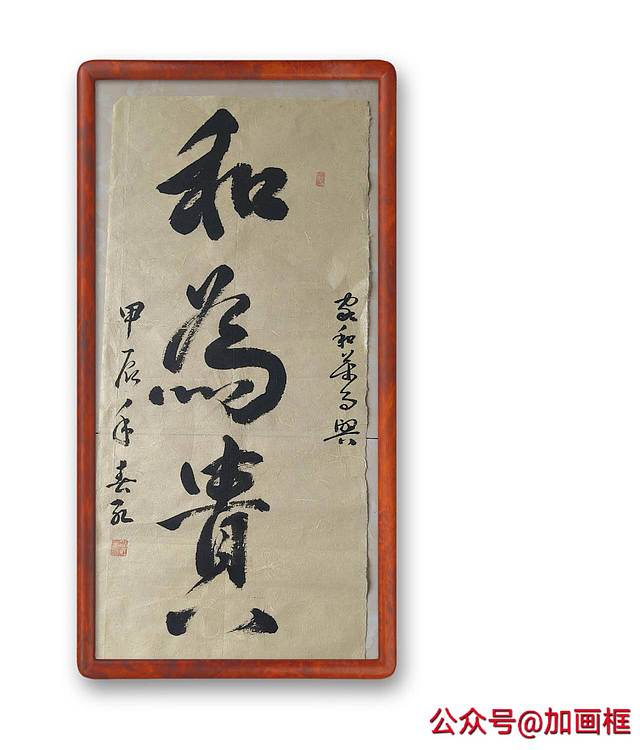 家和萬事興
和為貴
甲辰年春
公众号@加画框